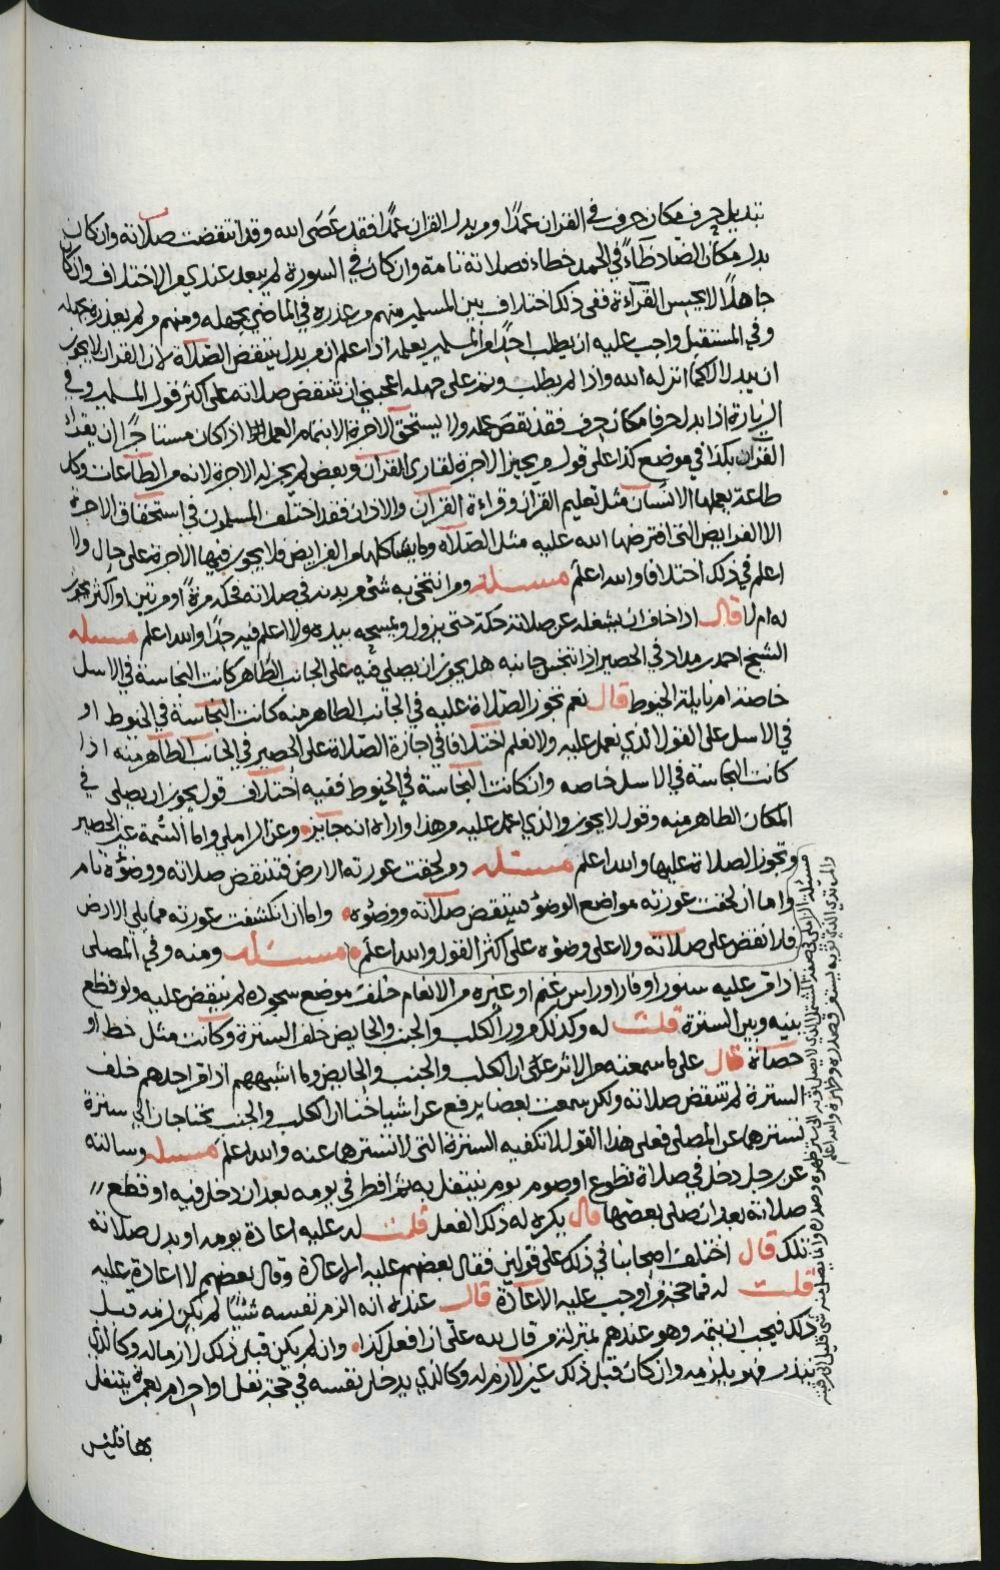 تبديل حرف مكان حرف في القران عمدًا ومن بدل القران عمدًا فقد عَصَى الله وقد انتقضت صلاته وان كان
بدل مكان الضاد ظاءً في الحمد خطاء فصلاته تامة وان كان في السورة لم يبعد عندي من الاختلاف وان كان
جاهلًا لا يحسن القرآءة ففي ذلك اختلاف بين المسلمين منهم من عذره في الماضي بجهله ومنهم من لم يعذره بجهله
وفي المستقبل واجب عليه ان يطلب احدًا من المسلمين يعلمه اذا علم ان من بدل ينتقض الصلاة لان القران لا يجوز
ان يبدل الا كما انزله الله واذا لم يطلب وتم على جهله اعجبني ان تنتقض صلاته على اكثر قول المسلمين وفي
الزيارة اذا بدل حرفا مكان حرف فقد نقص عمله ولا يستحق الاجرة الا بتمام العمل اذا كان مستاجرًا ان يقرا
القرآن بكذا في موضع كذا على قول من يجيز الاجرة لقاري القرآن وبعض لم يجز له الاجرة لانه من الطاعات وكل
طاعة يعملها الانسان مثل تعليم القران وقراءة القرآن والاذان فقد اختلف المسلمون في استحقاق الاجرة
الا الفرايض التي افترضها الله عليه مثل الصلاة وما يضاكلها من الفرايض ولا يجوز فيها الاجرة على حال ولا
اعلم في ذلك اختلافا والله اعلم مسئلة ومن انتخى به شئ من بدنه في صلاته فحكه مرةً او مرتين او اكثر يجوز
له ام لا قال اذا خاف ان يشغله عن صلاته حكه حتى يزول ويمسحه بيده ولا اعلم فيه حدًا والله اعلم مسئله
الشيخ احمد بن مداد في الحصير اذا تنجس جانبه هل يجوز ان يصلي فيه على الجانب الطاهر كانت النجاسة في الاسل
خاصة ام نايلة الخيوط قال نعم تجوز الصلاة عليه في الجانب الطاهر منه كانت النجاسة في الخيوط او
في الاسل على القول الذي نعمل عليه ولا نعلم اختلافا في اجازة الصلاة على الحصير في الجانب الطاهر منه اذا
كانت النجاسة في الاسل خاصه وان كانت النجاسة في الخيوط ففيه اختلاف قول يجوز ان يصلي في
المكان الطاهر منه وقول لا يجوز والذي اعمل عليه وهذا واراه انه جايز وعن الزاملي واما السُّمة غير الحصير
وتجوز الصلاة عليها والله اعلم مسئله ومن لحقت عورته الارض فتنتقض صلاته ووضؤه تام
واما ان لحقت عورته مواضع الوضؤ فينتقض صلاته ووضؤه واما ان انكشفت عورته مما يلي الارض
فلا نقض على صلاته ولا على وضؤه على اكثر القول والله اعلم مسئله ومنه وفي المصلى
اذا قر عليه سنور او فار او راس غنم او غيره من الانعام خلف موضع سجوده لم ينتقض عليه ولو قطع
بينه وبين السترة قلت له وكذلك مرور الكلب والجنب والحايض خلف السترة وكانت مثل خط او
حصاة قال على ما سمعته من الاثر على ان الكلب والجنب والحايض وما اشبههم اذا قر احدهم خلف
السترة لم تنتقض صلاته ولكن سمعت بعضا يرفع عن اشياخنا ان الكلب والجنب يحتاجان الى سترة
تسترهما عن المصلى فعلى هذا القول لا تكفيه السترة التي لا تسترهما عنه والله اعلم مسئله وسالته
عن رجل دخل في صلاة تطوع او صوم يوم يتنفل به ثم افطر في يومه بعد ان دخل فيه او قطع
صلاته بعد ان صلى بعضها قال يكره له ذلك الفعل قلت له عليه اعادة يومه او بدل صلاته
تلك قال اختلف اصحابنا في ذلك على قولين فقال بعضهم عليه الاعادة وقال بعضهم لا اعادة عليه
قلت له فما حجة من اوجب عليه الاعادة قال عنده انه الزم نفسه شيئًا لم يكن لزمه قبل
ذلك فيجب ان يتمه وهو عندهم بمنزلة من قال لله على ان افعل كذا وان لم يكن قبل ذلك لازما له وكالذي
ينذر فهو يلزمه وان كان قبل ذلك غير لازم له وكالذي يدخل نفسه في حجة نفل او احرام بعمرة يتنفل
بها فليس